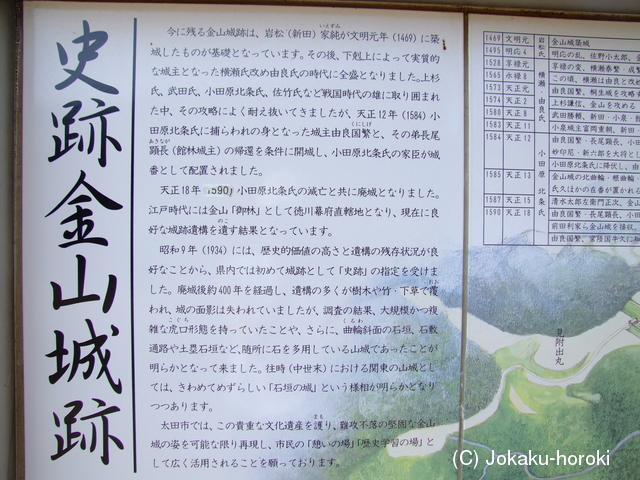 史跡金山城跡
今に残る金山城跡は、岩松（新田）家純が文明元年（1469）に築
いえずみ
城したものが基礎となっています。その後、下剋上によって実質的
な城主となった横瀬氏改め由良氏の時代に全盛となりました。上杉
氏、武田氏、小田原北条氏、佐竹氏など戦国時代の雄に取り囲まれ
た中、その攻略によく耐え抜いてきましたが、天正12年（1584）小
田原北条氏に捕らわれの身となった城主由良国繁と、その弟長尾
くにしげ
顕長（館林城主）の帰還を条件に開城し、小田原北条氏の家臣が城
あきなが
番として配置されました。
天正18年（1590）小田原北条氏の滅亡と共に廃城となりました。
江戸時代には金山「御林」として徳川幕府直轄地となり、現在に良
好な城跡遺構を遺す結果となっています。
のこ
昭和9年（1934）には、歴史的価値の高さと遺構の残存状況が良
好なことから、県内では初めて城跡として「史跡」の指定を受けま
した。廃城後約400年を経過し、遺構の多くが樹木や竹・下草で覆
おお
われ、城の面影は失われていましたが、調査の結果、大規模かつ複
雑な虎口形態を持っていたことや、さらに、曲輪斜面の石垣、石敷
こぐち
くるわ
通路や土塁石垣など、随所に石を多用している山城であったことが
明らかとなって来ました。往時（中世末）における関東の山城とし
ては、きわめてめずらしい「石垣の城」という様相が明らかとなり
つつあります。
太田市では、この貴重な文化遺産を護り、難攻不落の堅固な金山
まも
城の姿を可能な限り再現し、市民の「憩いの場」「歴史学習の場」と
して広く活用されることを願っております。
1469 文明元 岩松氏 金山城築城
1495 明応4 明応の乱、佐野小太郎、金
1528 享禄元 横瀬・由良氏 享禄の変、横瀬泰繁・成繁
1565 永禄8 この頃、横瀬は由良と改め
1573 天正元 由良国繁、桐生城を攻略す
1574 天正2 上杉謙信、金山を攻める
1580 天正8 武田勝頼、新田・小泉・館
1583 天正11 小泉城主富岡重朝、新田・
1584 天正12 小田原北条氏 由良国繁・長尾顕長、小田
妙印尼・新六郎を大将とし
小田原北条氏に降伏し、由
1585 天正13 金山城の北曲輪・根曲輪
氏久ほかの在番が置かれる
1587 天正15 清水太郎左衛門正次、金山
1590 天正18 由良国繁・長尾顕長、小田
前田利家ら金山城を接収。
由良国繁、常陸国牛久に
見附出丸
(C) Jokaku-horoki